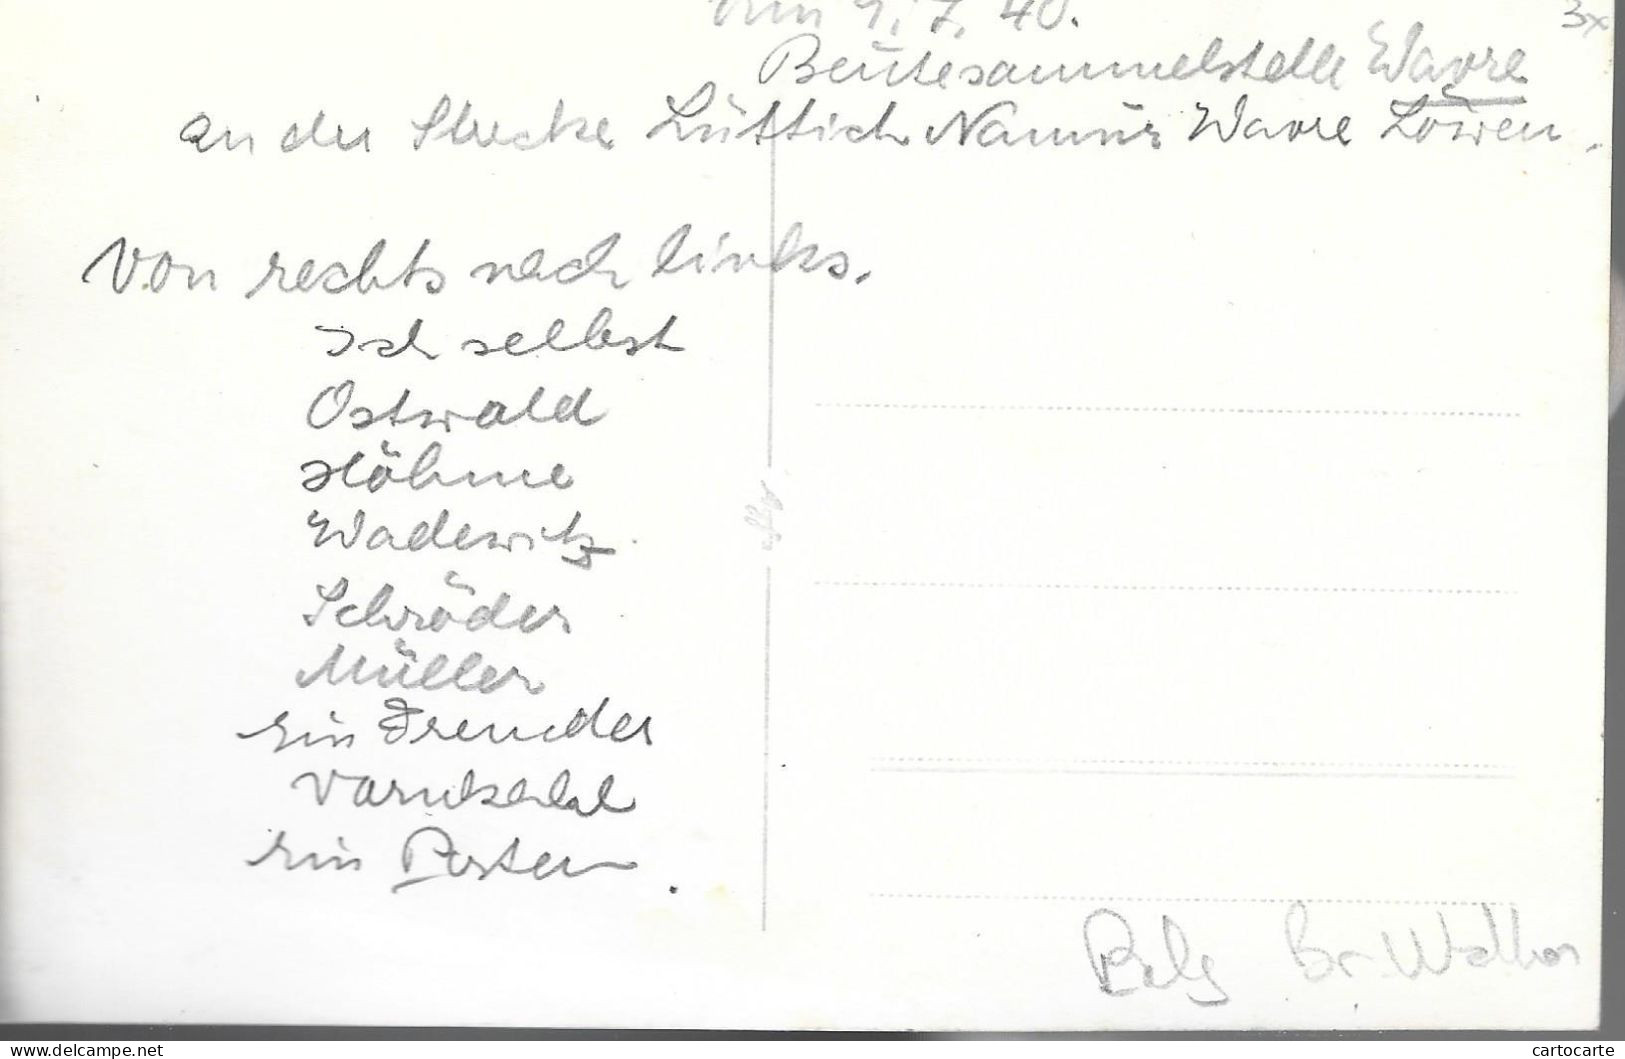 4.7.40.
3x
Beutesammelstelle Wavre
an der Strecke Lüttich Namur Wavre Löwen.
Von rechts nach links.
Ich selbst
Ostwald
Höhme
Wadewitz
Schröder
Müller
ein Fremder
ein Posten.
Belg Br. Wallon
cartocarte
https://www.delcampe.net